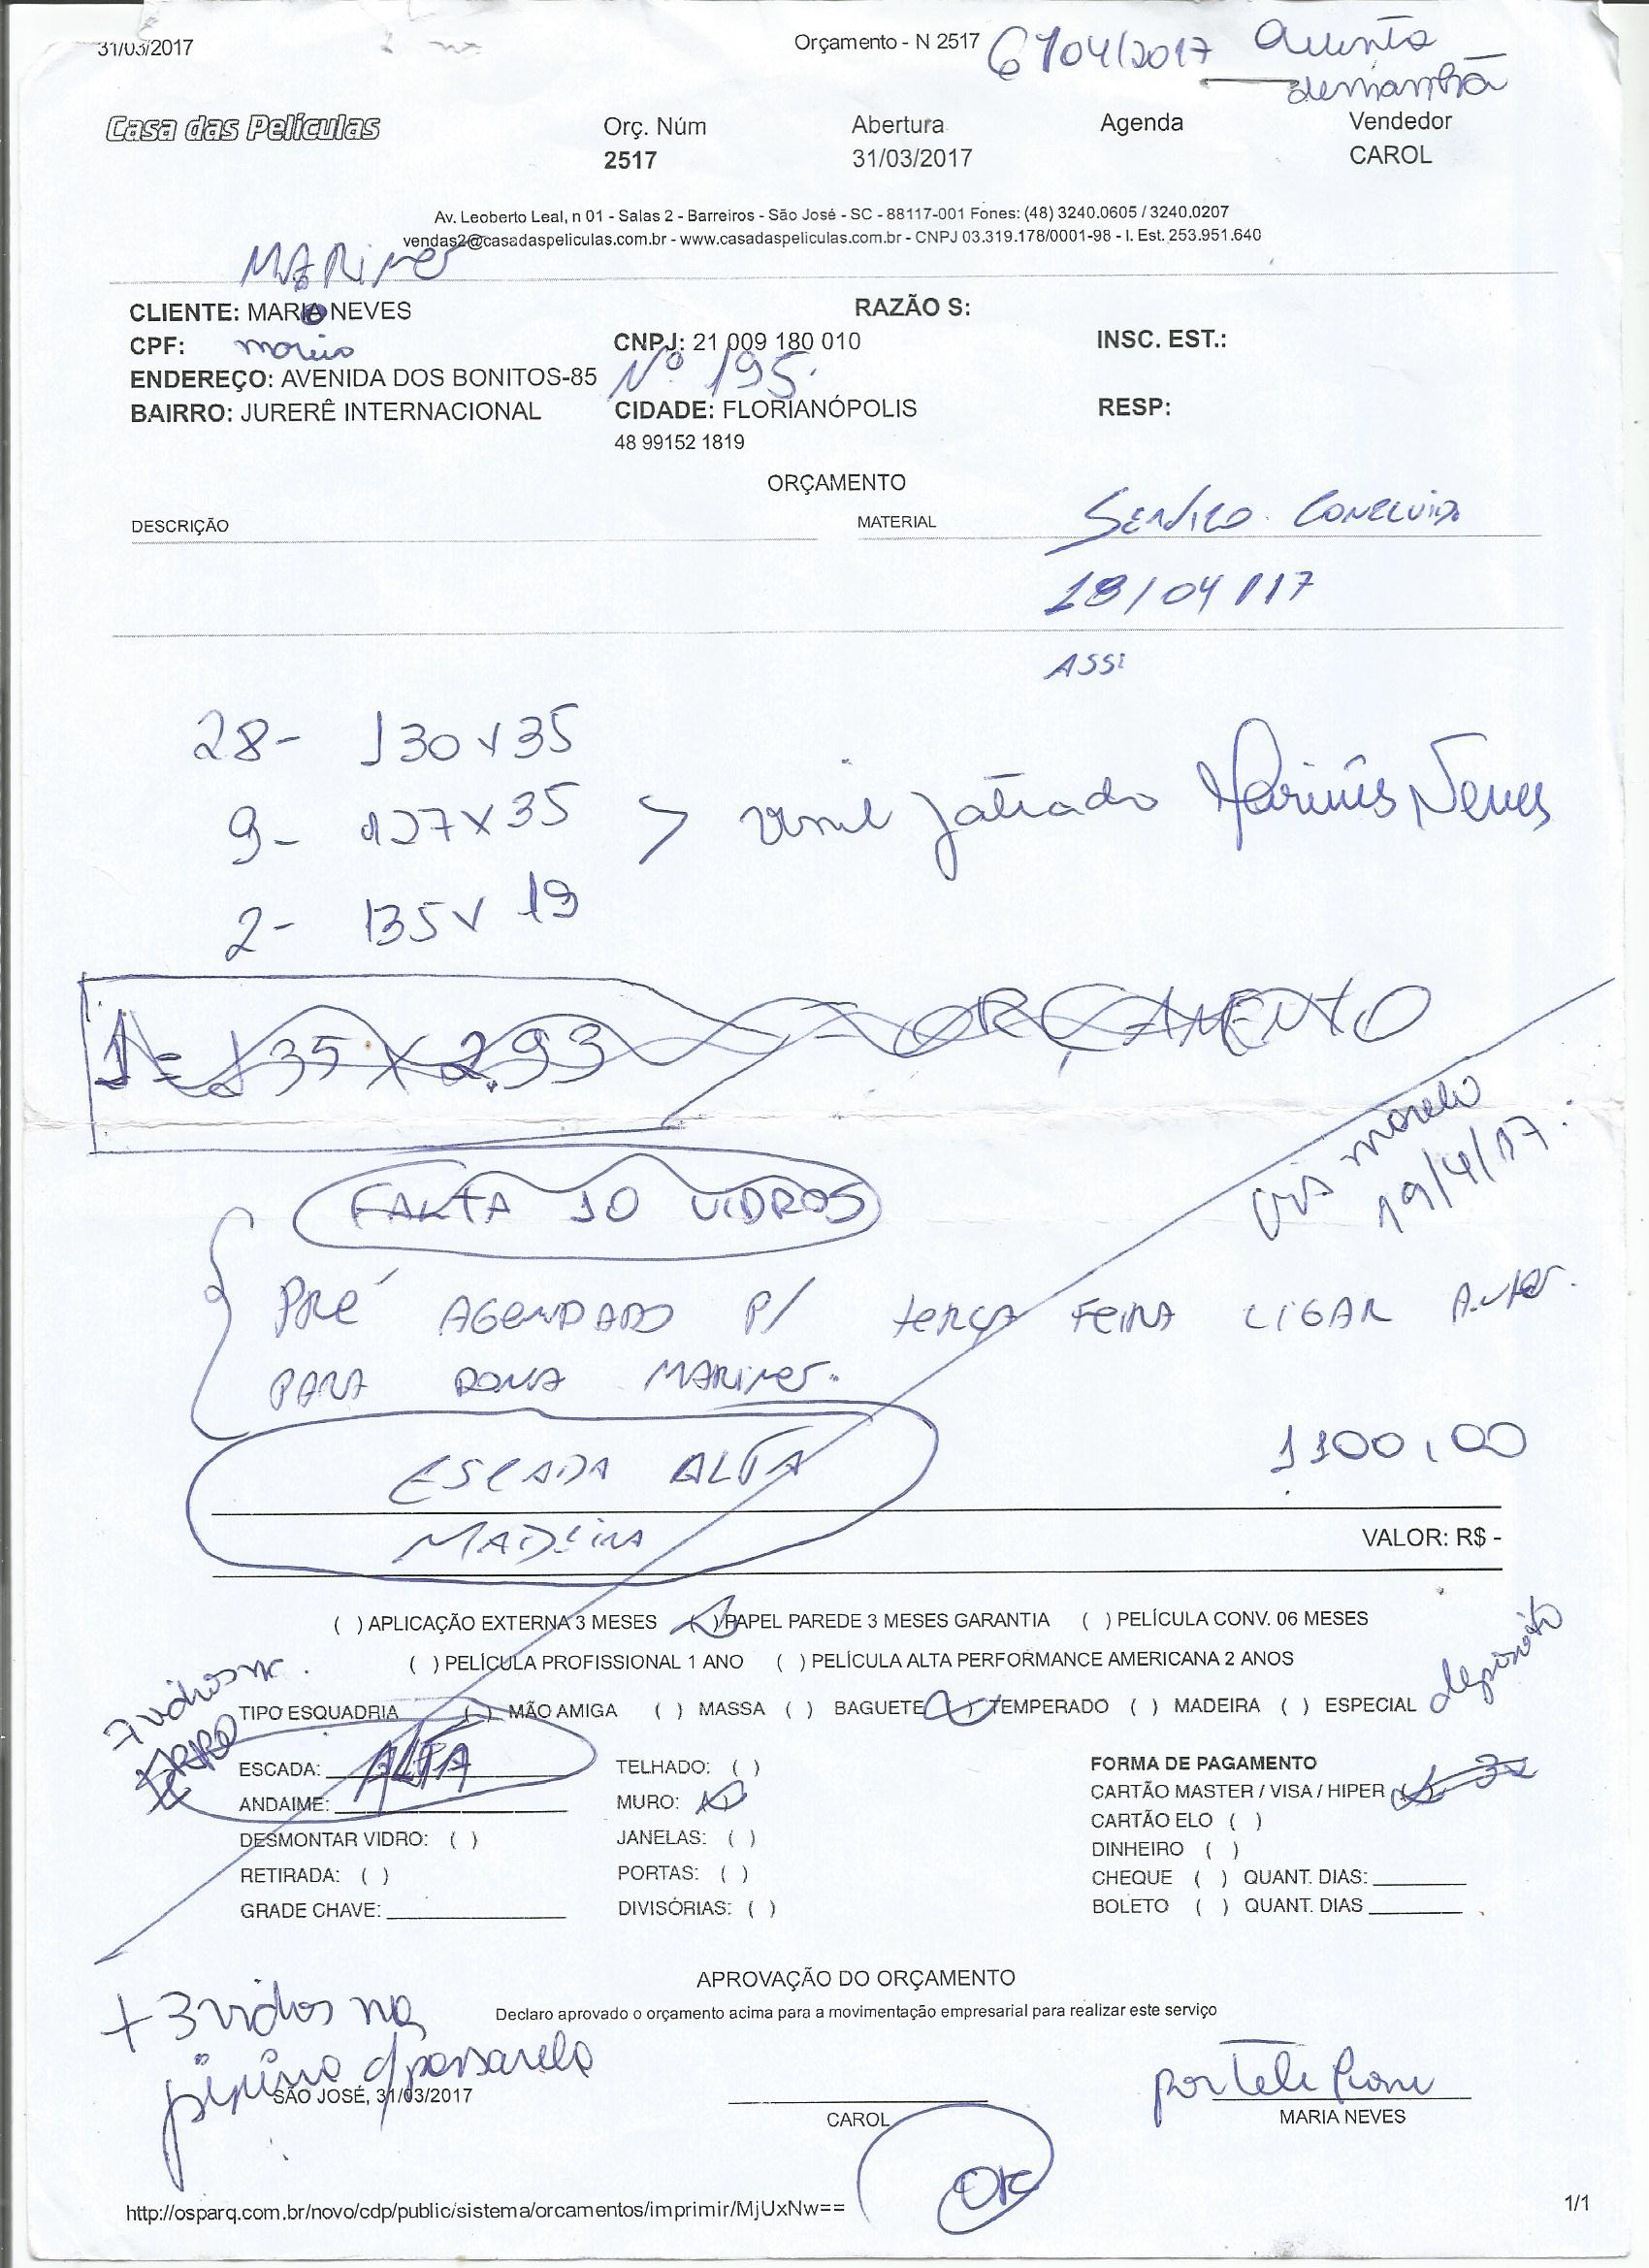 31/03/2017
Orçamento - N 2517
6/04/2017 Quinta
demanhã
Casa das Películas
Orç. Núm Abertura Agenda Vendedor
2517 31/03/2017 CAROL
Av. Leoberto Leal, n 01 - Salas 2 - Barreiros - São José - SC - 88117-001 Fones: (48) 3240.0605 / 3240.0207
vendas2@casadaspeliculas.com.br - www.casadaspeliculas.com.br - CNPJ 03.319.178/0001-98 - I. Est. 253.951.640
MARINES
CLIENTE: MARIA NEVES RAZÃO S:
CPF: CNPJ: 21 009 180 010 INSC. EST.:
Nº 195.
ENDEREÇO: AVENIDA DOS BONITOS-85
BAIRRO: JURERÊ INTERNACIONAL CIDADE: FLORIANÓPOLIS RESP:
48 99152 1819
ORÇAMENTO
DESCRIÇÃO MATERIAL
SERVIÇO CONCLUIDO
18/04/17
ASS:
28- 130 x 35
9- 127 x 35 > vinil jatiado Marinês Neves
2- 135 x 19
1 = 135 x 2.93 = ORÇAMENTO
19/4/17.
FALTA 10 VIDROS
PRÉ AGENDADO P/ TERÇA FEIRA LIGAR ANTES.
PARA DONA MARINES.
ESCADA ALTA
1100,00
MADEIRA
VALOR: R$ -
( ) APLICAÇÃO EXTERNA 3 MESES ( ) PAPEL PAREDE 3 MESES GARANTIA ( ) PELÍCULA CONV. 06 MESES
( ) PELÍCULA PROFISSIONAL 1 ANO ( ) PELÍCULA ALTA PERFORMANCE AMERICANA 2 ANOS
deposito
7 vidros
TIPO ESQUADRIA ( ) MÃO AMIGA ( ) MASSA ( ) BAGUETE ( ) TEMPERADO ( ) MADEIRA ( ) ESPECIAL
ESCADA: ALTA TELHADO: ( ) FORMA DE PAGAMENTO
ANDAIME: MURO: (X) CARTÃO MASTER / VISA / HIPER ( )
CARTÃO ELO ( )
DESMONTAR VIDRO: ( ) JANELAS: ( ) DINHEIRO ( )
RETIRADA: ( ) PORTAS: ( ) CHEQUE ( ) QUANT. DIAS:
GRADE CHAVE: DIVISÓRIAS: ( ) BOLETO ( ) QUANT. DIAS
APROVAÇÃO DO ORÇAMENTO
Declaro aprovado o orçamento acima para a movimentação empresarial para realizar este serviço
+ 3 vidros na
piscina d/passarela
por telefone
SÃO JOSÉ, 31/03/2017
CAROL MARIA NEVES
OK
http://osparq.com.br/novo/cdp/public/sistema/orcamentos/imprimir/MjUxNw== 1/1